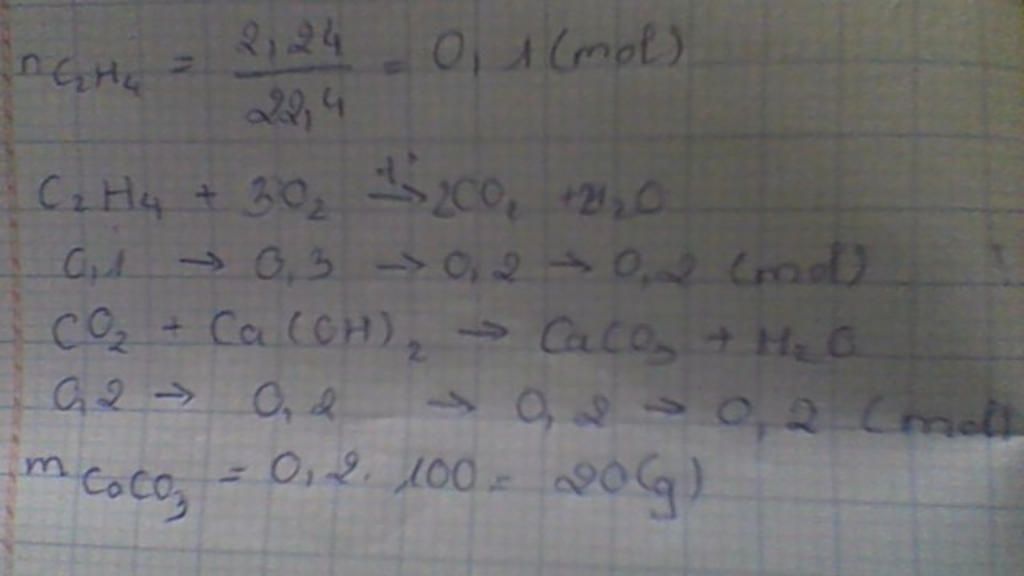 n C₂H₄ = 2,24 / 22,4 = 0,1 (mol)
C₂H₄ + 3O₂ →t° 2CO₂ + 2H₂O
0,1 → 0,3 → 0,2 → 0,2 (mol)
CO₂ + Ca(OH)₂ → CaCO₃ + H₂O
0,2 → 0,2 → 0,2 → 0,2 (mol)
m CaCO₃ = 0,2. 100 = 20(g)